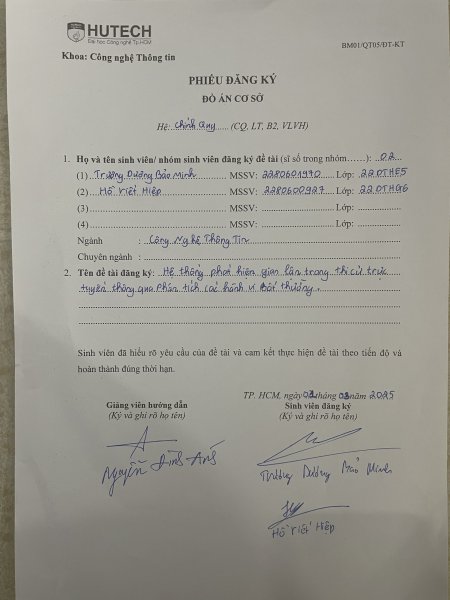 HUTECH
Đại học Công nghệ Tp.HCM
BM01/QT05/ĐT-KT
Khoa: Công nghệ Thông tin
PHIẾU ĐĂNG KÝ
ĐỒ ÁN CƠ SỞ
Hệ: Chính quy (CQ, LT, B2, VLVH)
1. Họ và tên sinh viên/ nhóm sinh viên đăng ký đề tài (sĩ số trong nhóm......): 02
(1) Trương Dương Bảo Minh MSSV: 2280601970 Lớp: 22DTHE5
(2) Hồ Viết Hiệp MSSV: 2280600927 Lớp: 22DTHG6
(3) MSSV: Lớp:
(4) MSSV: Lớp:
Ngành : Công Nghệ Thông Tin
Chuyên ngành :
2. Tên đề tài đăng ký: Hệ thống phát hiện gian lận trong thi cử trực
tuyến thông qua phân tích các hành vi bất thường.
Sinh viên đã hiểu rõ yêu cầu của đề tài và cam kết thực hiện đề tài theo tiến độ và
hoàn thành đúng thời hạn.
TP. HCM, ngày tháng 03 năm 2025
Giảng viên hướng dẫn Sinh viên đăng ký
(Ký và ghi rõ họ tên) (Ký và ghi rõ họ tên)
Nguyễn Đình Ánh Trương Dương Bảo Minh
Hồ Viết Hiệp